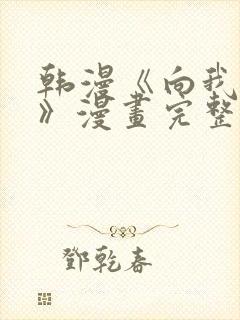 韩漫《向我
》漫畫完整
鄧乾春